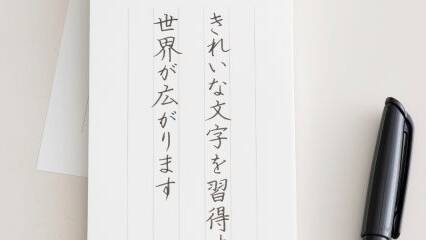 きれいな文字を習得
世界が広がります